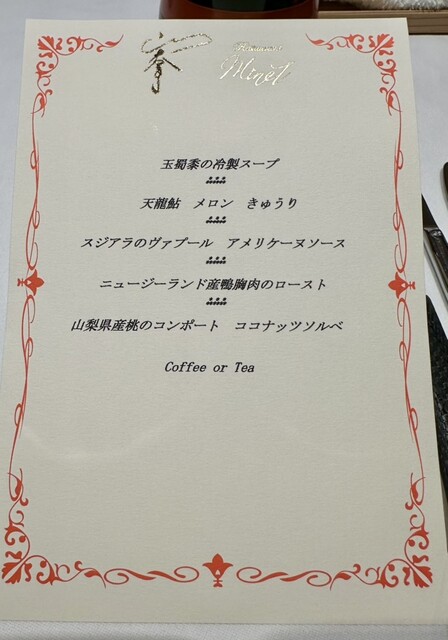 Minet
玉蜀黍の冷製スープ
天龍鮎　メロン　きゅうり
スジアラのヴァプール　アメリケーヌソース
ニュージーランド産鴨胸肉のロースト
山梨県産桃のコンポート　ココナッツソルベ
Coffee or Tea